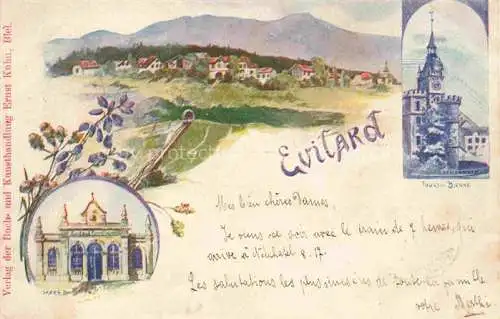 Verlag der Buch- und Kunsthandlung Ernst Kuhn, Biel.
Evilard
Mes bien chères Dames,
Je viens ce soir avec le train de 7 heures, qui
arrive à Neuchâtel 8.17.
Les salutations les plus sincères de
votre Berthe